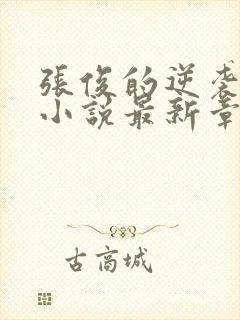 張俊的逆袭
小說最新章
古高城